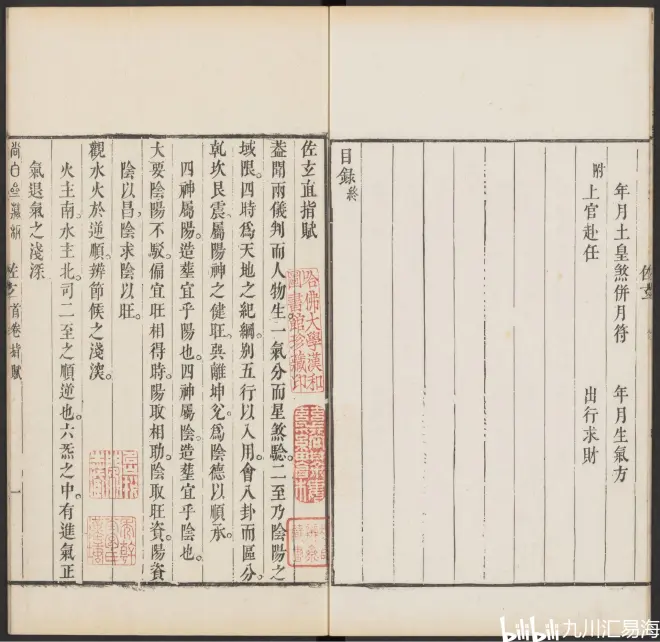 佐玄
年月土皇煞併月符 年月生氣方
附 上官赴任 出行求財
目錄終
佐玄直指賦
蓋聞兩儀判而人物生。一氣分而星煞驗。二至乃陰陽之
域限。四時爲天地之紀綱。別五行以入用。會八卦而區分。
乾坎艮震屬陽神之健旺。巽離坤兌爲陰德以順承。
四神屬陽。造塟宜乎陽也。四神屬陰。造塟宜乎陰也。
大要陰陽不駁。偏宜旺相得時。陽取相助。陰取旺資。陽資
陰以昌。陰求陰以旺。
觀水火於逆順。辨節候之淺深。
火主南。水主北。司二至之順逆也。六炁之中。有進氣正
氣退氣之淺深
尚白齋藏 佐玄 首卷 指賦 一
哈佛大學漢和
圖書館珍藏印
bilibili 九川汇易海